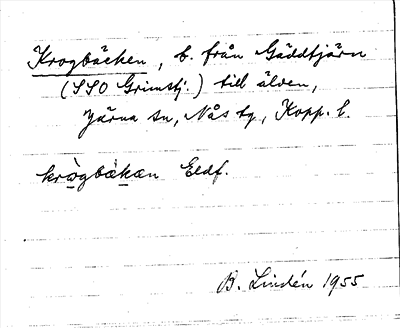 Krogbäcken, b. från Gäddtjärn
(SSO Grimstj.) till älven,
Järna sn, Nås tg, Kopp. l.
krògbäkan Eldf.
B. Lindén 1955